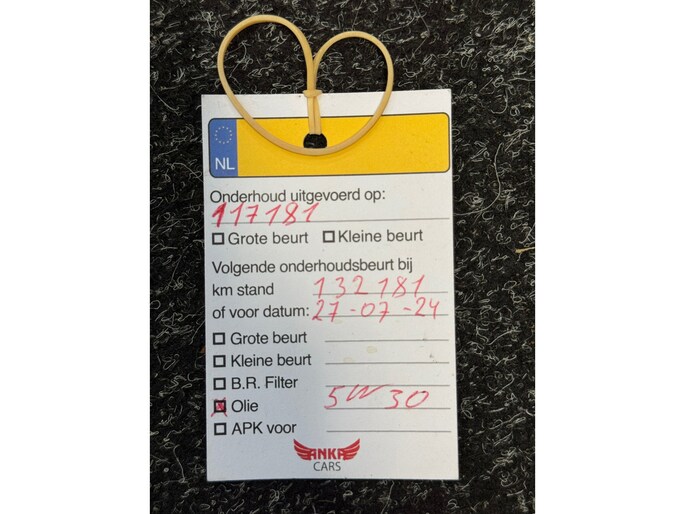 NL
Onderhoud uitgevoerd op:
117181
Grote beurt Kleine beurt
Volgende onderhoudsbeurt bij
km stand 132181
of voor datum: 27-07-24
Grote beurt
Kleine beurt
B.R. Filter
Olie 5W30
APK voor
ANKA
CARS